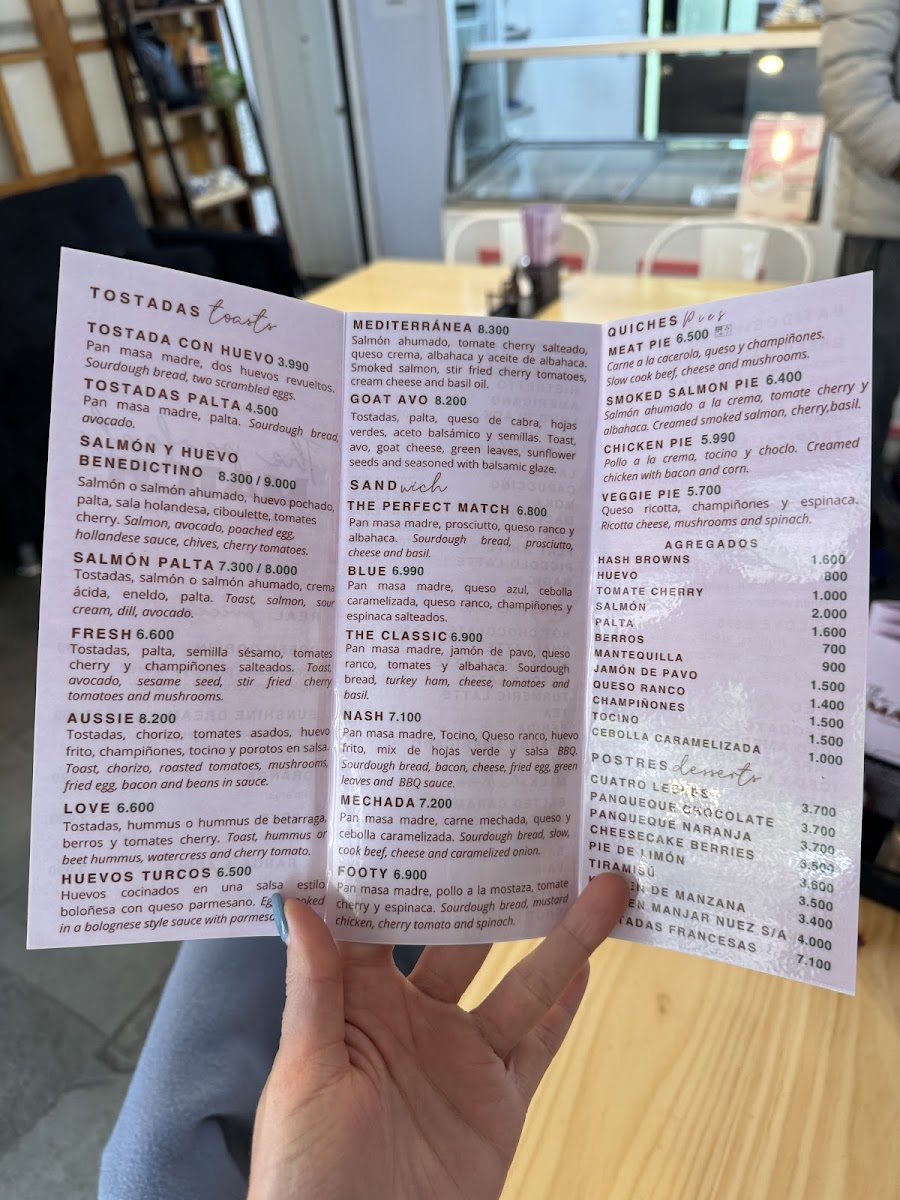 TOSTADAS toasts
TOSTADA CON HUEVO 3.990
Pan masa madre, dos huevos revueltos.
Sourdough bread, two scrambled eggs.
TOSTADAS PALTA 4.500
Pan masa madre, palta. Sourdough bread,
avocado.
SALMÓN Y HUEVO
BENEDICTINO 8.300 / 9.000
Salmón o salmón ahumado, huevo pochado,
palta, sala holandesa, ciboulette, tomates
cherry. Salmon, avocado, poached egg,
hollandese sauce, chives, cherry tomatoes.
SALMÓN PALTA 7.300 / 8.000
Tostadas, salmón o salmón ahumado, crema
ácida, eneldo, palta. Toast, salmon, sour
cream, dill, avocado.
FRESH 6.600
Tostadas, palta, semilla sésamo, tomates
cherry y champiñones salteados. Toast,
avocado, sesame seed, stir fried cherry
tomatoes and mushrooms.
AUSSIE 8.200
Tostadas, chorizo, tomates asados, huevo
frito, champiñones, tocino y porotos en salsa.
Toast, chorizo, roasted tomatoes, mushrooms,
fried egg, bacon and beans in sauce.
LOVE 6.600
Tostadas, hummus o hummus de betarraga,
berros y tomates cherry. Toast, hummus or
beet hummus, watercress and cherry tomato.
HUEVOS TURCOS 6.500
Huevos cocinados en una salsa estilo
boloñesa con queso parmesano.
in a bolognese style sauce with
MEDITERRÁNEA 8.300
Salmón ahumado, tomate cherry salteado,
queso crema, albahaca y aceite de albahaca.
Smoked salmon, stir fried cherry tomatoes,
cream cheese and basil oil.
GOAT AVO 8.200
Tostadas, palta, queso de cabra, hojas
verdes, aceto balsámico y semillas. Toast,
avo, goat cheese, green leaves, sunflower
seeds and seasoned with balsamic glaze.
SANDwich
THE PERFECT MATCH 6.800
Pan masa madre, prosciutto, queso ranco y
albahaca. Sourdough bread, prosciutto,
cheese and basil.
BLUE 6.990
Pan masa madre, queso azul, cebolla
caramelizada, queso ranco, champiñones y
espinaca salteados.
THE CLASSIC 6.900
Pan masa madre, jamón de pavo, queso
ranco, tomates y albahaca. Sourdough
bread, turkey ham, cheese, tomatoes and
basil.
NASH 7.100
Pan masa madre, Tocino, Queso ranco, huevo
frito, mix de hojas verde y salsa BBQ.
Sourdough bread, bacon, cheese, fried egg, green
leaves and BBQ sauce.
MECHADA 7.200
Pan masa madre, carne mechada, queso y
cebolla caramelizada. Sourdough bread, slow,
cook beef, cheese and caramelized onion.
FOOTY 6.900
Pan masa madre, pollo a la mostaza, tomate
cherry y espinaca. Sourdough bread, mustard
chicken, cherry tomato and spinach.
QUICHES Pies
MEAT PIE 6.500
Carne a la cacerola, queso y champiñones.
Slow cook beef, cheese and mushrooms.
SMOKED SALMON PIE 6.400
Salmón ahumado a la crema, tomate cherry y
albahaca. Creamed smoked salmon, cherry,basil.
CHICKEN PIE 5.990
Pollo a la crema, tocino y choclo. Creamed
chicken with bacon and corn.
VEGGIE PIE 5.700
Queso ricotta, champiñones y espinaca.
Ricotta cheese, mushrooms and spinach.
AGREGADOS
HASH BROWNS 1.600
HUEVO 800
TOMATE CHERRY 1.000
SALMÓN 2.000
PALTA 1.600
BERROS 700
MANTEQUILLA 900
JAMÓN DE PAVO 1.500
QUESO RANCO 1.400
CHAMPIÑONES 1.500
TOCINO 1.500
CEBOLLA CARAMELIZADA 1.000
POSTRES desserts
CUATRO LECHES 3.700
PANQUEQUE CHOCOLATE 3.700
PANQUEQUE NARANJA 3.700
CHEESECAKE BERRIES 3.500
PIE DE LIMÓN 3.600
TIRAMISÚ 3.500
DE MANZANA 3.400
MANJAR NUEZ S/A 4.000
FRANCESAS 7.100